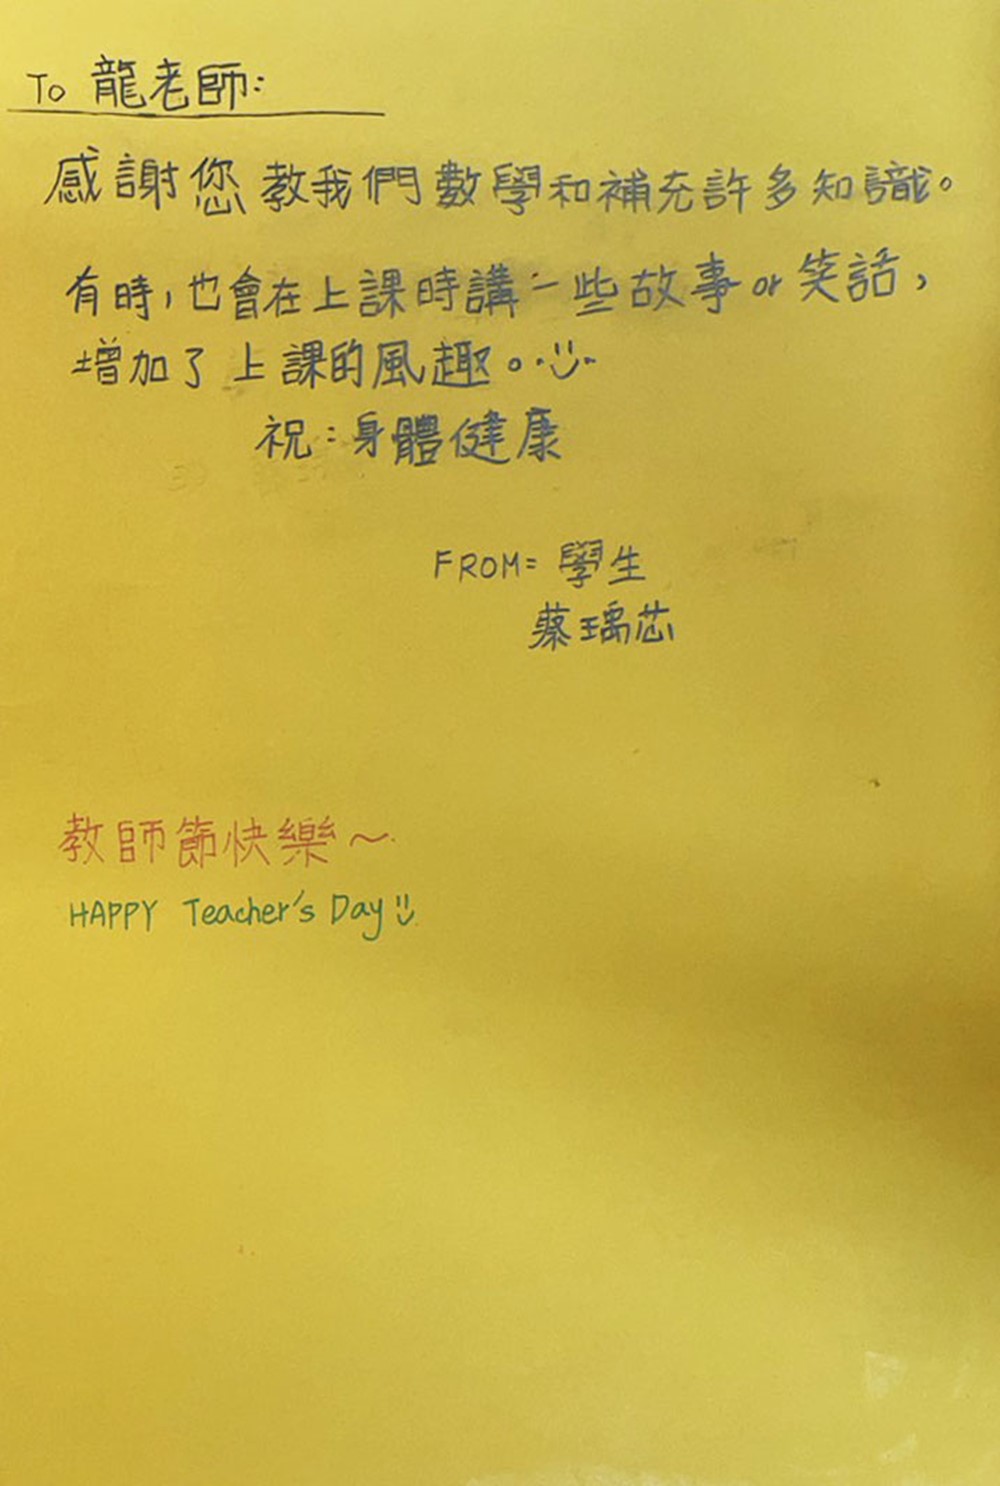 To 龍老師:
感謝您教我們數學和補充許多知識。
有時,也會在上課時講一些故事or笑話,
增加了上課的風趣。
祝:身體健康
FROM= 學生
蔡瑀芯
教師節快樂～
HAPPY Teacher's Day